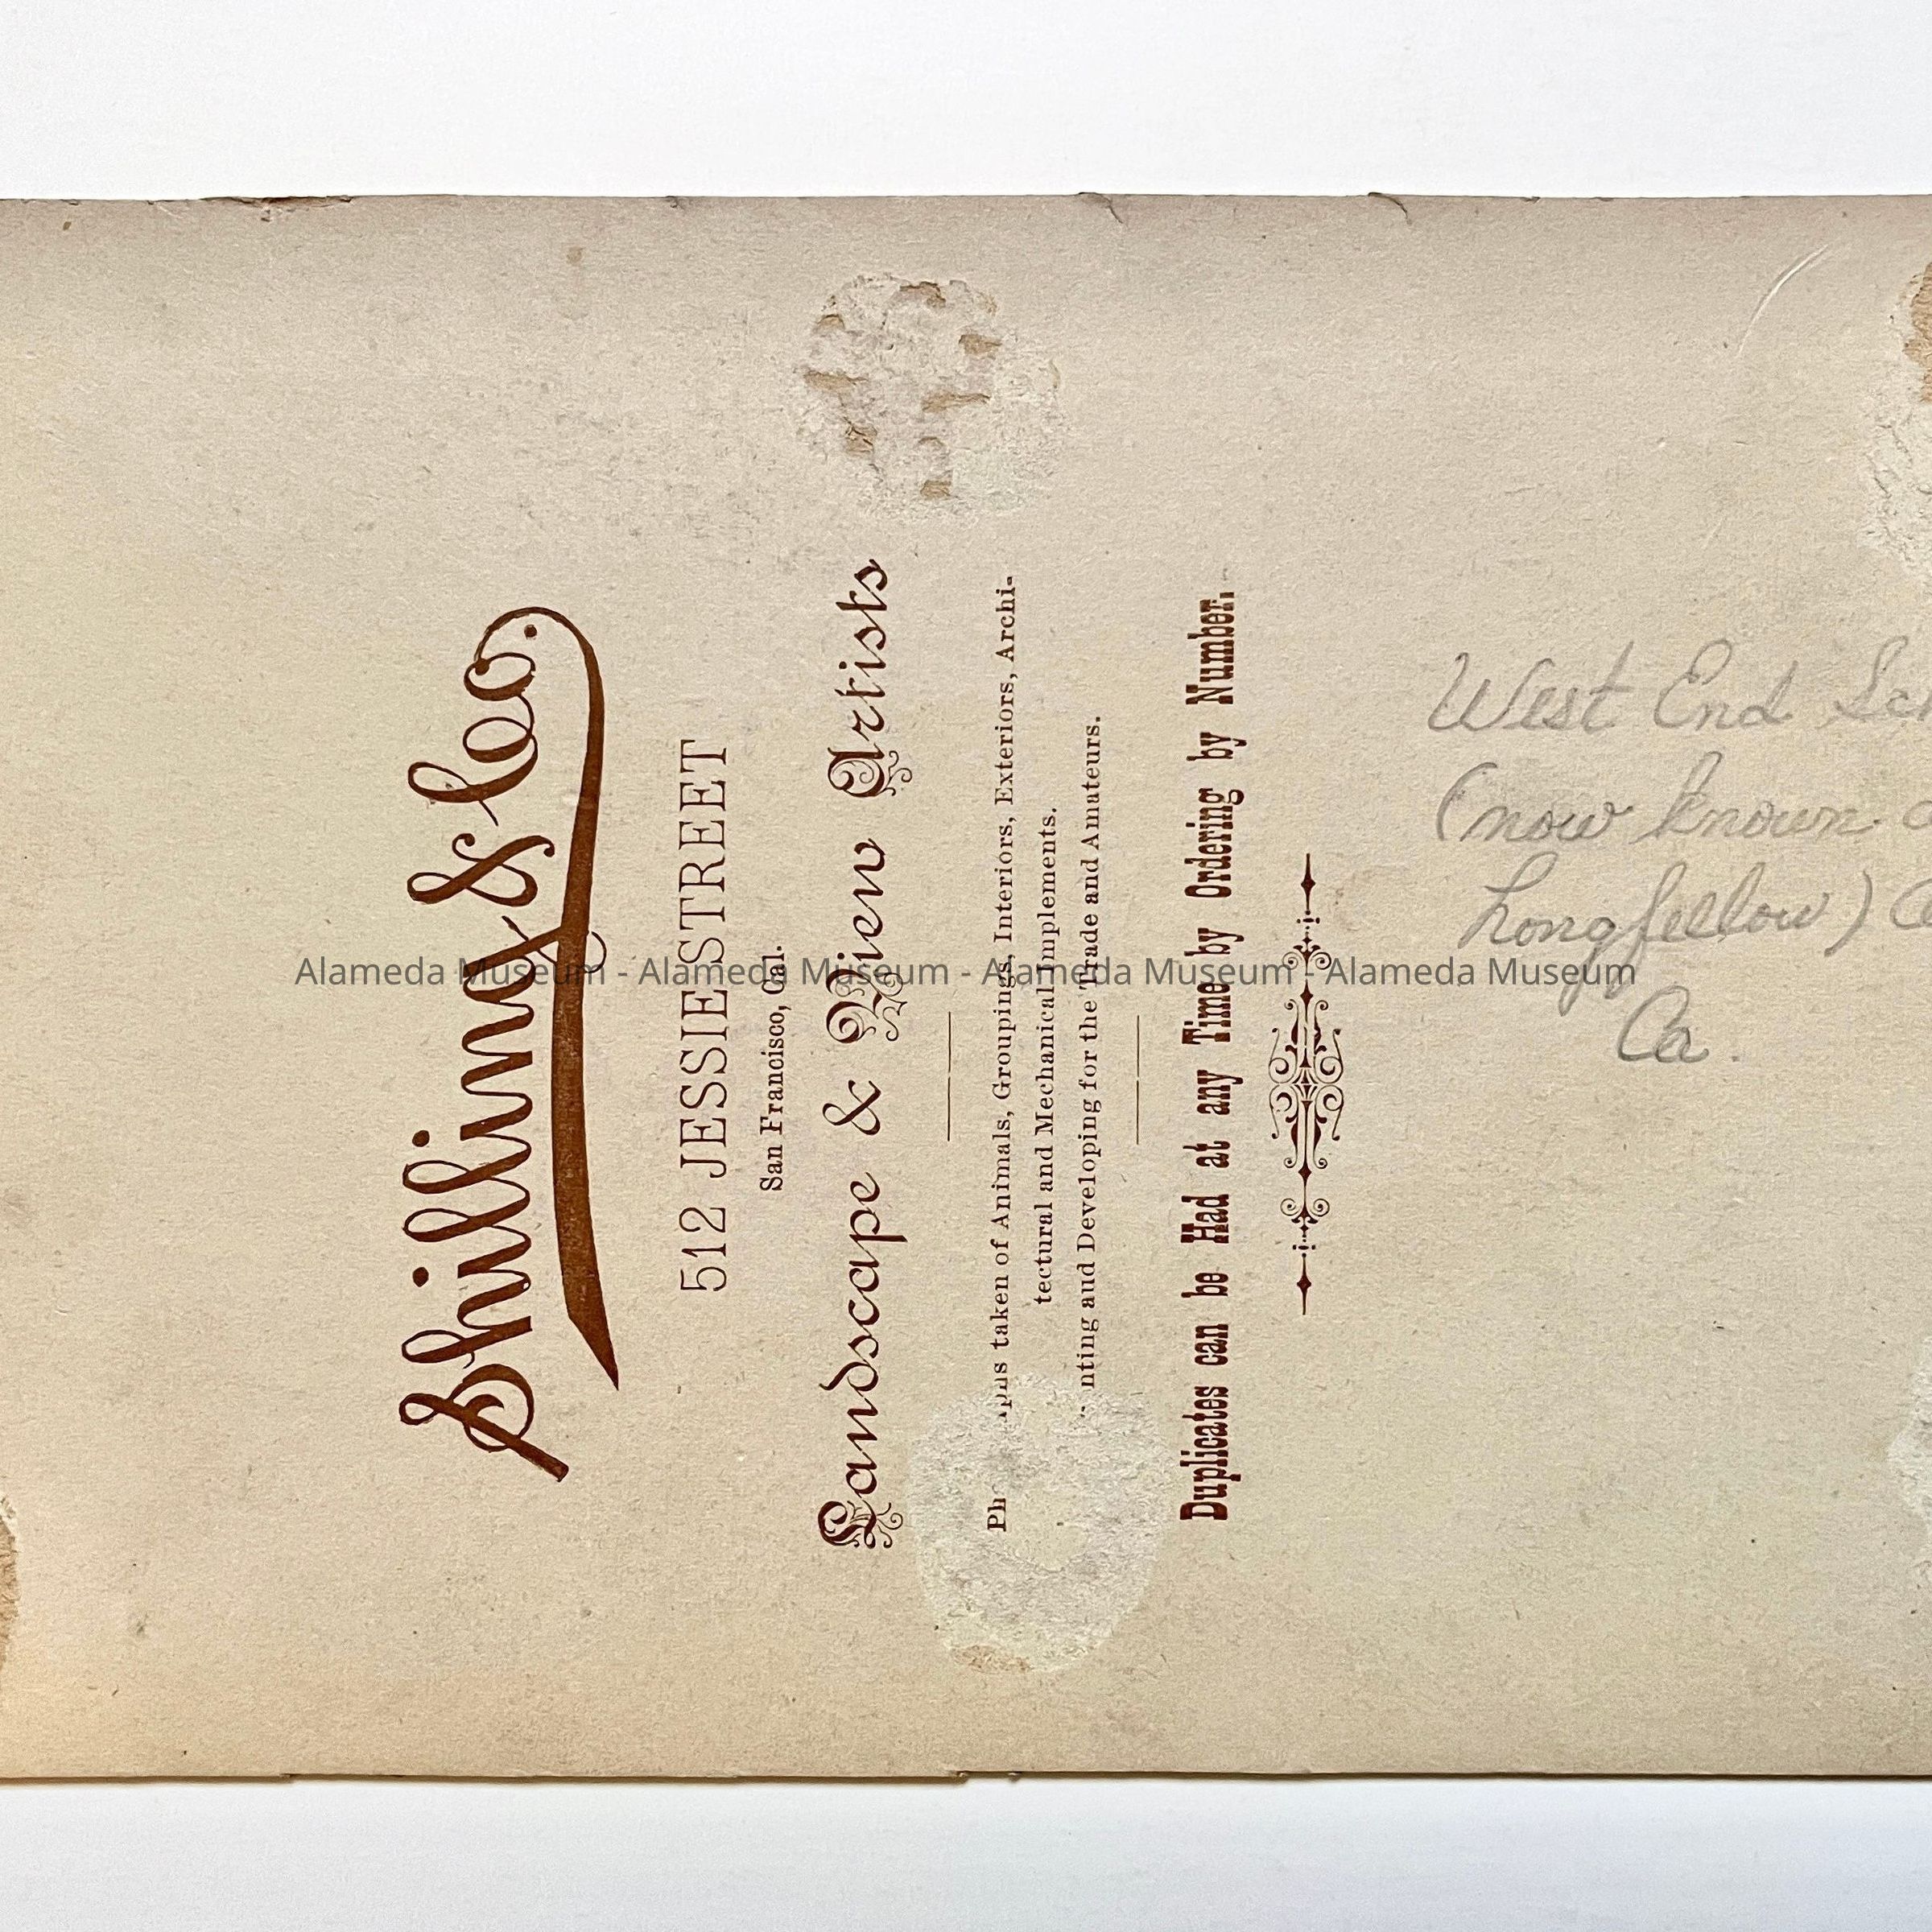 Shilling & Co.
512 JESSIE STREET
San Francisco, Cal.
Landscape & View Artists
taken of Animals, Groupings, Interiors, Exteriors, Archi-
tectural and Mechanical Implements.
aud Developing for the Trade and Amateurs.
Duplicates can be Had at any Time by Ordering by Number.
West End
(now known
Longfellow)
Ca.
Alameda Museum - Alameda Museum - Alameda Museum - Alameda Museum